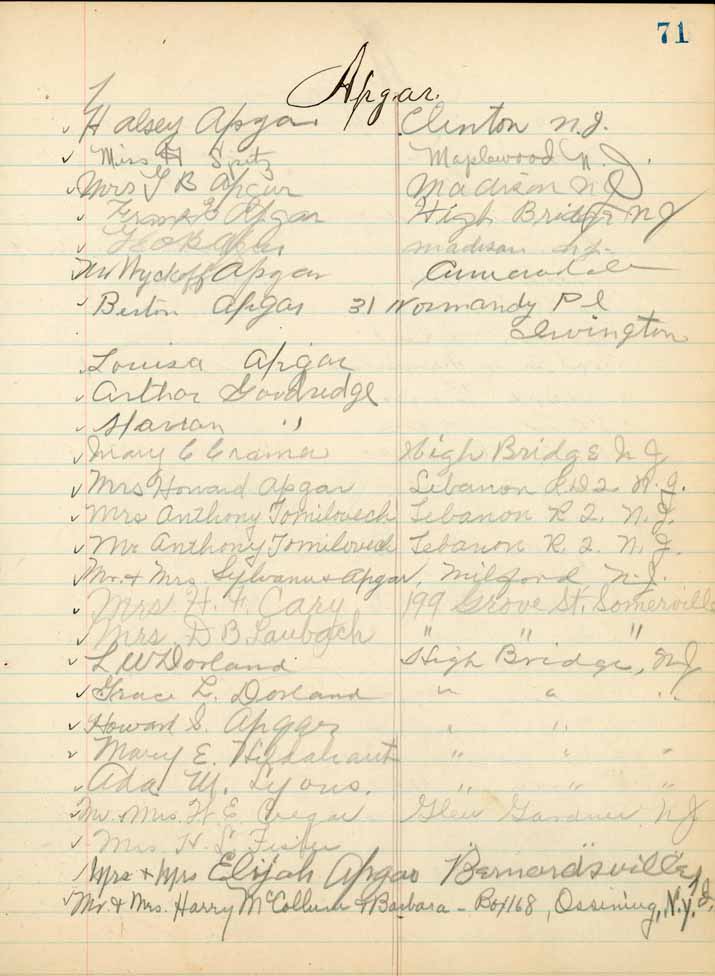 71
Apgar.
Halsey Apgar Clinton N.J.
Miss H Spitz Maplewood N.J.
Mrs J B Apgar Madison NJ
Frank Apgar High Bridge NJ
Apgar Madison N.J.
Wyckoff Apgar Annandale
Berton Apgar 31 Normandy Pl
Irvington
Louisa Apgar
Arthur Goodredge
Marian "
Mary C Cramer High Bridge N J
Mrs Howard Apgar Lebanon R.D.2. N.J.
Mrs Anthony Tomilovech Lebanon R. 2. N.J.
Mr. Anthony Tomilovech Lebanon R. 2. N.J.
Mr. & Mrs. Sylvanus Apgar, Milford N.J.
Mrs. H. F. Cary 199 Grove St. Somerville
Mrs. D B Laubach " " "
L W Dorland High Bridge, NJ
Grace L. Dorland " " "
Howard S. Apgar " "
Mary E. " " "
Ada M. Lyons. " " "
Mr. Mrs. H. E. Cregar Glen Gardner NJ
Mrs. H. L. Fisher
Mrs + Mrs Elijah Apgar Bernardsville, N.J.
Mr. & Mrs. Harry McCollum & Barbara - Box 168, Ossining, N.Y.